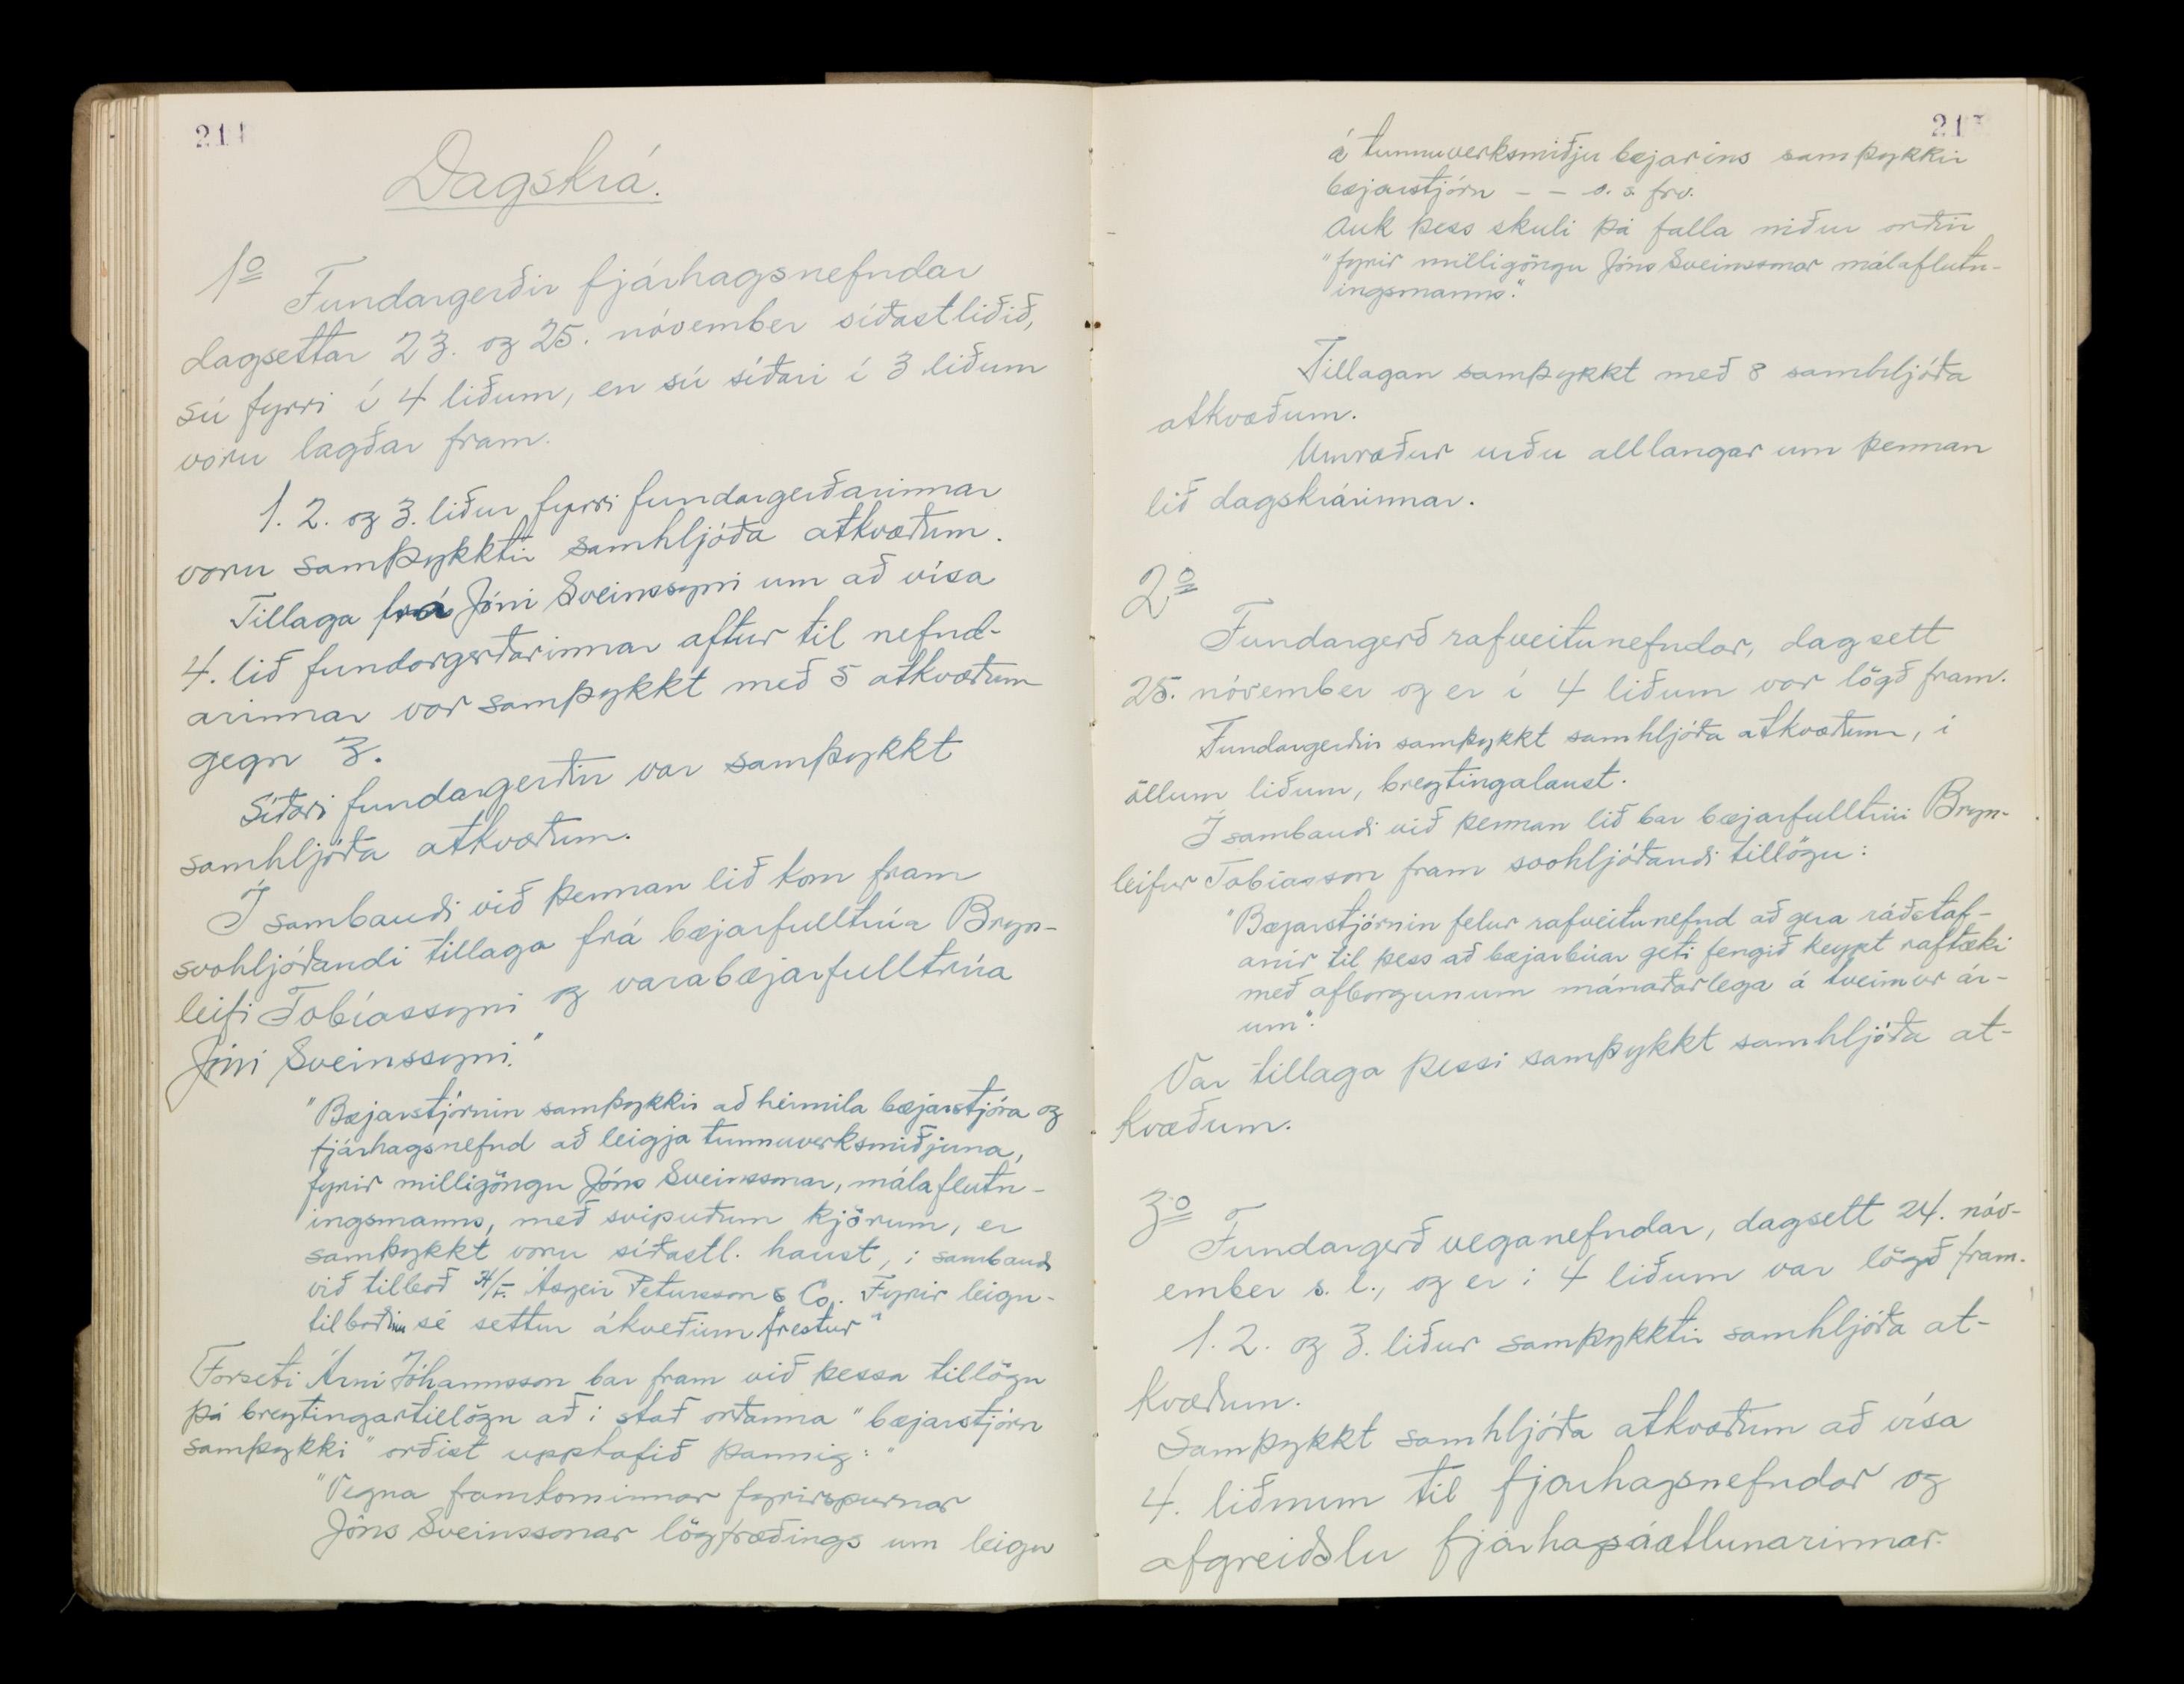 Dagskrá.
1o
Fundargerðir fjárhagsnefndar
dagsettar 23. og 25. nóvember síðastliðið,
sú fyrri í 4 liðum, en sú síðari í 3 liðum
voru lagðar fram.
1. 2. og 3. liður fyrri fundargerðarinnar
voru samþykktir samhljóða atkvæðum.
Tillaga frá Jóni Sveinssyni um að vísa
4. lið fundargerðarinnar aftur til nefnd-
arinnar var samþykkt með 5 atkvæðum
gegn 3.
Síðari fundargerðin var samþykkt
samhljóða atkvæðum.
Í sambandi við þennan lið kom fram
svohljóðandi tillaga frá bæjarfulltrúa Bryn-
leifi Tobíassyni og varabæjarfulltrúa
Jóni Sveinssyni."
"Bæjarstjórnin samþykkir að heimila bæjarstjóra og
fjárhagsnefnd að leigja tunnuverksmiðjuna,
fyrir milligöngu Jóns Sveinssonar, málaflutn-
ingsmanns, með svipuðum kjörum, er
samþykkt voru síðastl. haust, í sambandi
við tilboð H/F. Ásgeir Pétursson & Co. Fyrir leigu-
tilboðinu sé settur ákveðinn frestur"
Forseti Árni Jóhannsson bar fram við þessa tillögu
þá breytingartillögu að í stað orðanna "bæjarstjórn
samþykki" orðist upphafið þannig: "
"Vegna framkominnar fyrirspurnar
Jóns Sveinssonar lögfræðings um leigu
á tunnuverksmiðju bæjarins samþykkir
bæjarstjórn - - o. s. frv.
Auk þess skuli þá falla niður orðin
"fyrir milligöngu Jóns Sveinssonar málaflutn-
ingsmanns."
Tillagan samþykkt með 8 samhljóða
atkvæðum.
Umræður urðu alllangar um þennan
lið dagskrárinnar.
2o
Fundargerð rafveitunefndar, dagsett
25. nóvember og er í 4 liðum var lögð fram.
Fundargerðin samþykkt samhljóða atkvæðum, í
öllum liðum, breytingalaust.
Í sambandi við þennan lið bar bæjarfulltrúi Bryn-
leifur Tobiasson fram svohljóðandi tillögu:
"Bæjarstjórnin felur rafveitunefnd að gera ráðstaf-
anir til þess að bæjarbúar geti fengið keypt raftæki
með afborgunum mánaðarlega á tveimur ár-
um".
Var tillaga þessi samþykkt samhljóða at-
kvæðum.
3o
Fundargerð veganefndar, dagsett 24. nóv-
ember s. l., og er í 4 liðum var lögð fram.
1. 2. og 3. liður samþykktir samhljóða at-
kvæðum.
Samþykkt samhljóða atkvæðum að vísa
4. liðnum til fjárhagsnefndar og
afgreiðslu fjárhagsáætlunarinnar.